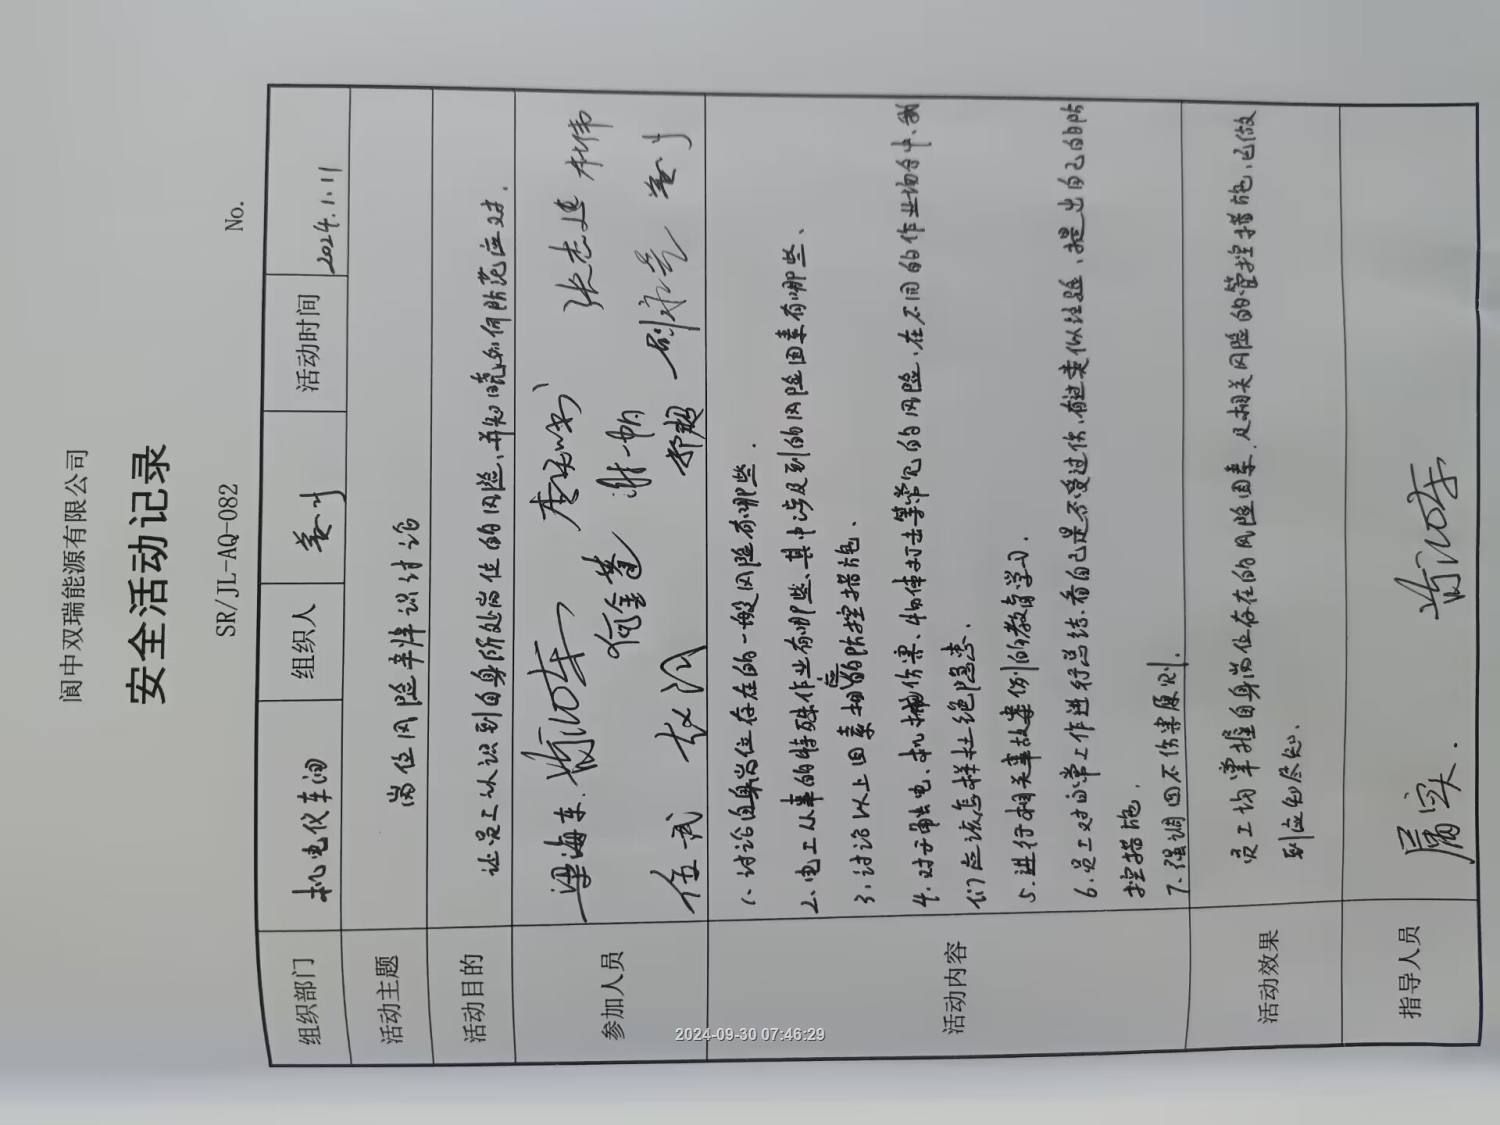 阆中双瑞能源有限公司
安全活动记录
SR/JL-AQ-082
No.
组织部门 机电仪车间 组织人 活动时间 2024.1.11
活动主题 岗位风险辛辨识讨论
活动目的 让员工认识到自身所处岗位的风险、并知晓如何防范应对.
参加人员 梁海东. 张志建 林伟
何金蓬 谢一帆
伍武 赵闪 郑超
活动内容
1、讨论自身岗位存在的一般风险有哪些.
2、电工从事的特殊作业有哪些、其中涉及到的风险因素有哪些、
3、讨论以上因素相应的防控措施.
4、对于触电、机械伤害、物体打击等常见的风险、在不同的作业场合中、我
们应该怎样杜绝隐患.
5、进行相关事故案例的教育学习.
6、员工对日常工作进行总结.看自己是不受过伤、有过类似经验、提出自己的防
控措施.
7、强调四不伤害原则.
活动效果 员工均掌握自身岗位存在的风险因素、及相关风险的管控措施、已做
到应知尽知.
指导人员
2024-09-30 07:46:29